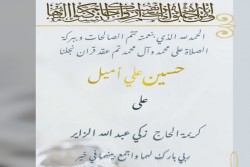 الحمد لله الذي بنعمته تتم الصالحات وببركة
الصلاة على محمد وآل محمد تم عقد قران نجلنا
حسين علي أميل
على
كريمة الحاج زكي عبد الله الزاير
ربي بارك لهما واجمع بينهما في خير